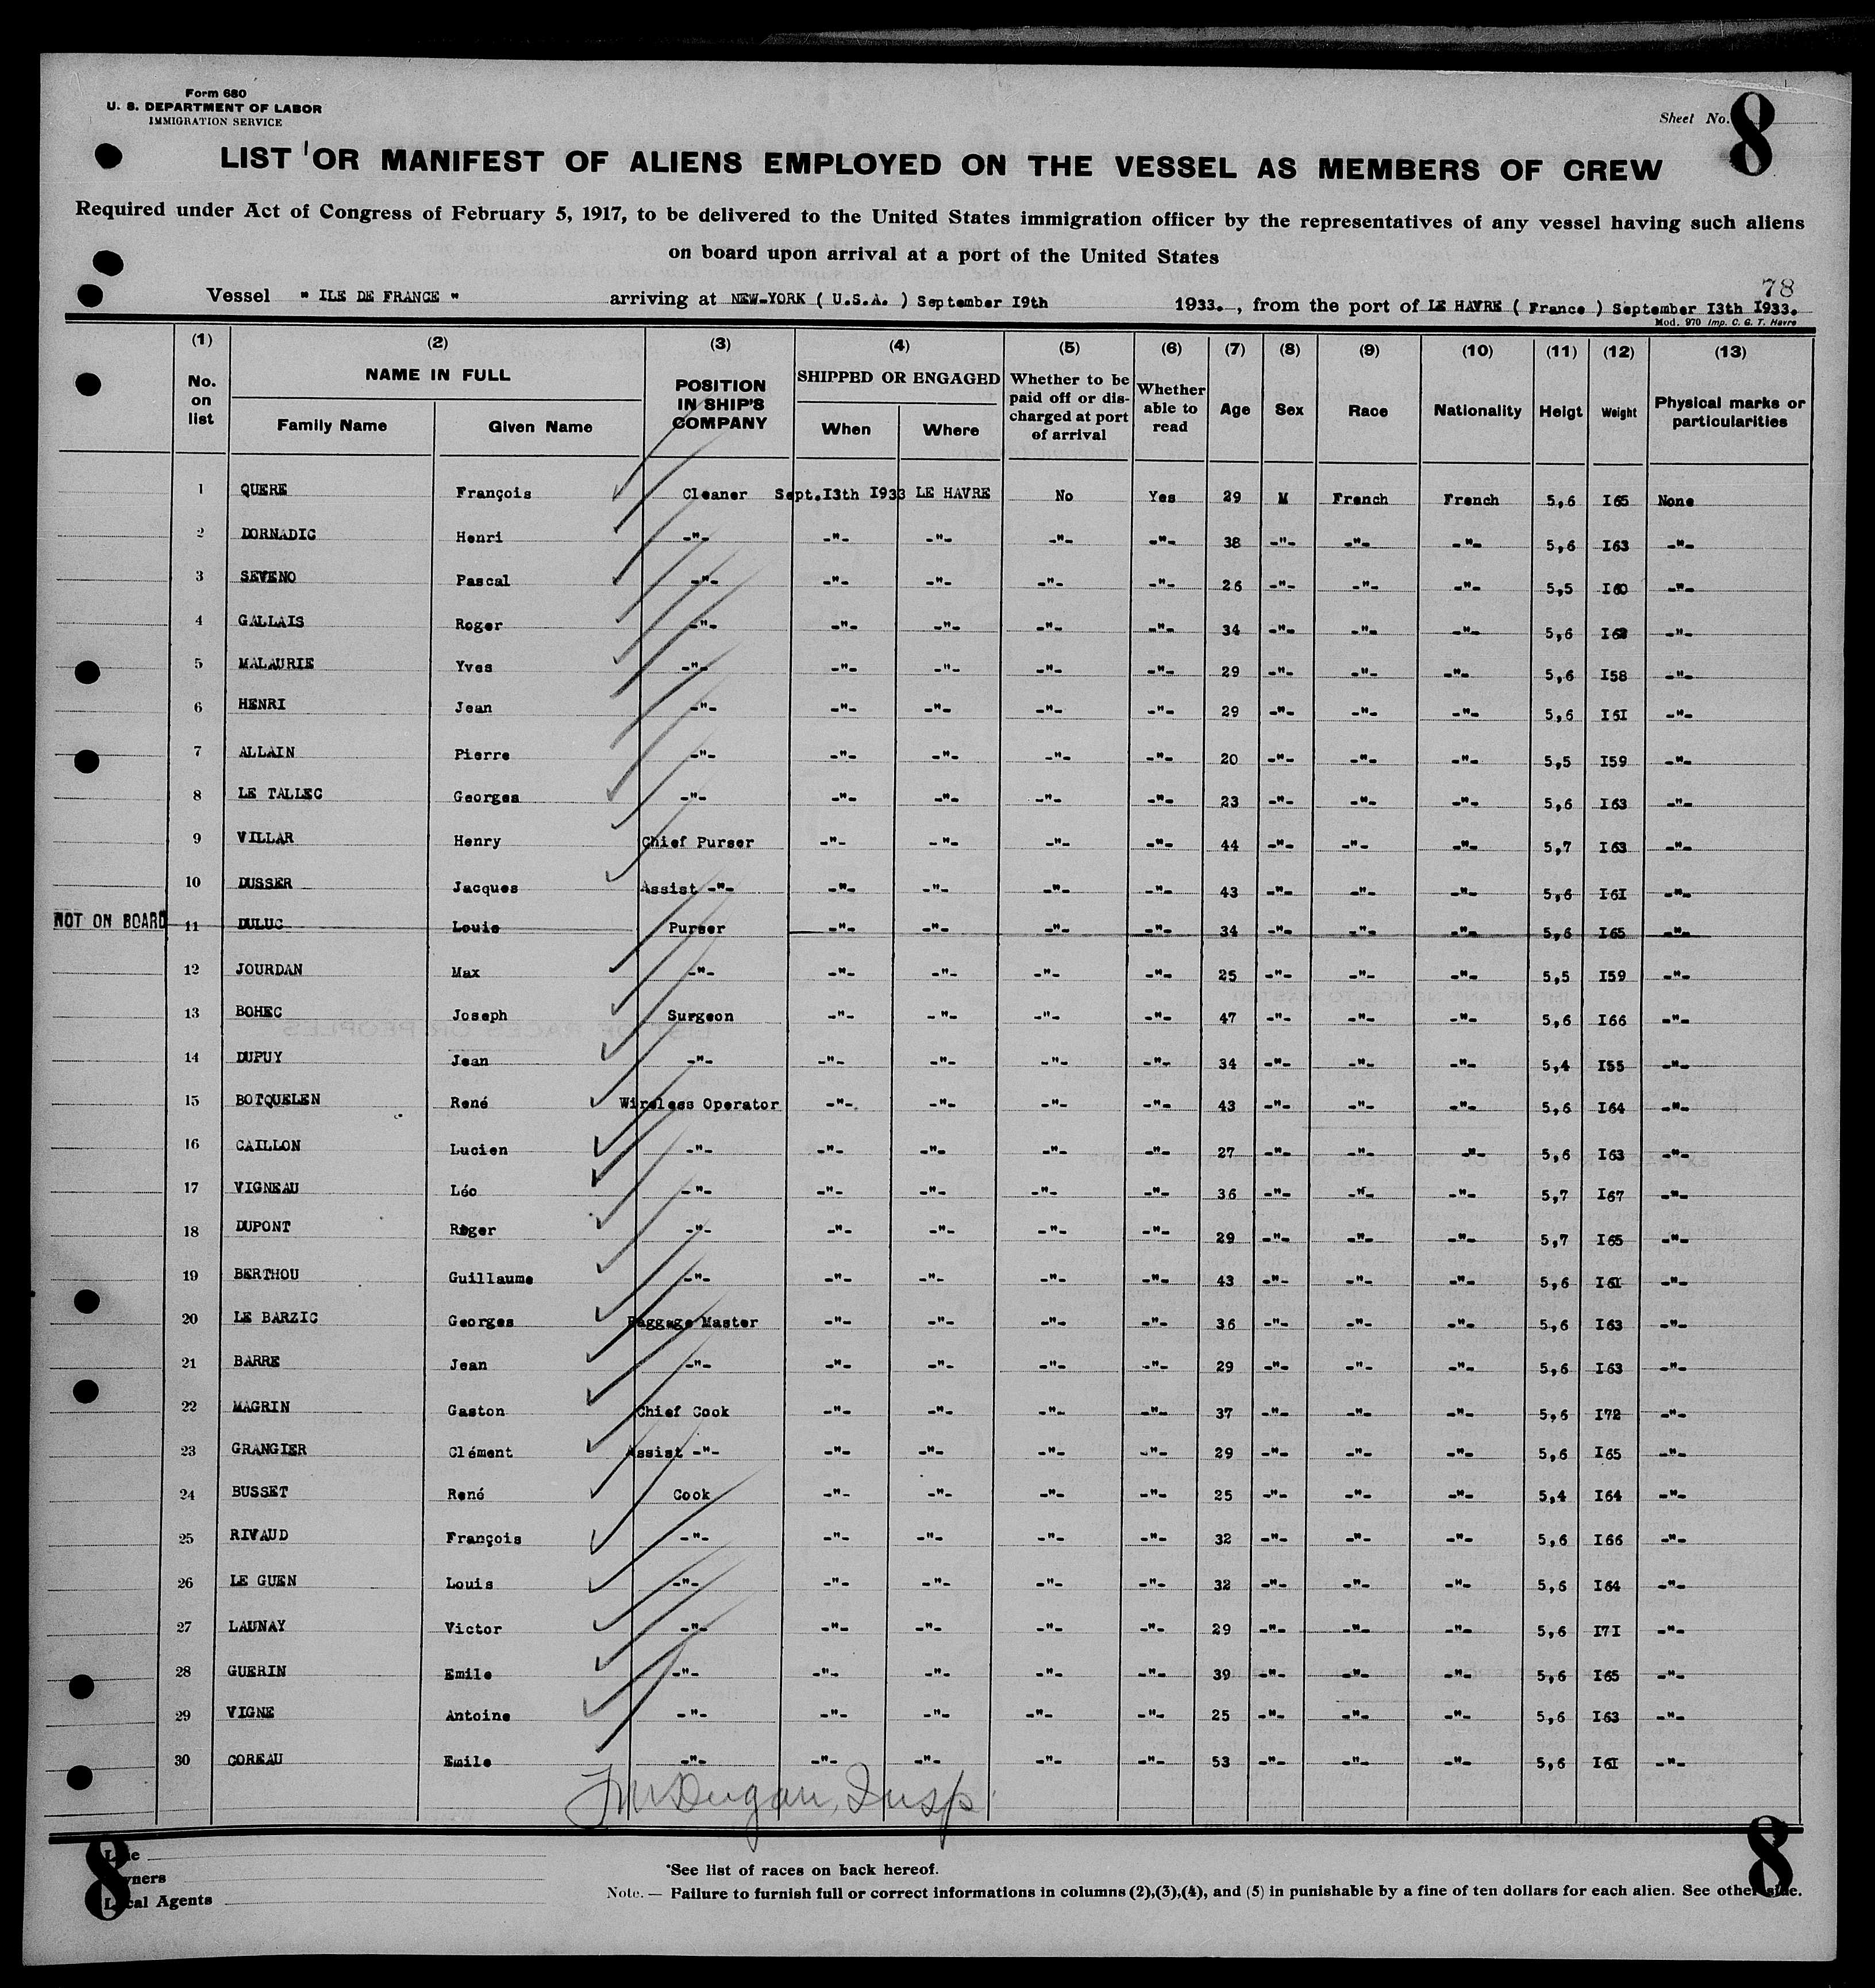 Form 680
U. S. DEPARTMENT OF LABOR
IMMIGRATION SERVICE
Sheet No. 8
LIST OR MANIFEST OF ALIENS EMPLOYED ON THE VESSEL AS MEMBERS OF CREW
Required under Act of Congress of February 5, 1917, to be delivered to the United States immigration officer by the representatives of any vessel having such aliens
on board upon arrival at a port of the United States
78
Vessel " ILE DE FRANCE " arriving at NEW-YORK ( U.S.A. ) September I9th 1933. , from the port of LE HAVRE ( France ) September I3th I933.
Mod. 970 Imp. C. G. T. Havre
(1) (2) (3) (4) (5) (6) (7) (8) (9) (10) (11) (12) (13)
No. on list NAME IN FULL Family Name Given Name POSITION IN SHIP'S COMPANY SHIPPED OR ENGAGED When Where Whether to be paid off or discharged at port of arrival Whether able to read Age Sex Race Nationality Heigt Weight Physical marks or particularities
1 QUERE François Cleaner Sept.I3th I933 LE HAVRE No Yes 29 M French French 5,6 I65 None
2 DORNADIC Henri -"- -"- -"- -"- -"- 38 -"- -"- -"- 5,6 I63 -"-
3 SEVENO Pascal -"- -"- -"- -"- -"- 26 -"- -"- -"- 5,5 I60 -"-
4 GALLAIS Roger -"- -"- -"- -"- -"- 34 -"- -"- -"- 5,6 -"-
5 MALAURIE Yves -"- -"- -"- -"- -"- 29 -"- -"- -"- 5,6 I58 -"-
6 HENRI Jean -"- -"- -"- -"- -"- 29 -"- -"- -"- 5,6 I6I -"-
7 ALLAIN Pierre -"- -"- -"- -"- -"- 20 -"- -"- -"- 5,5 I59 -"-
8 LE TALLEC Georges -"- -"- -"- -"- -"- 23 -"- -"- -"- 5,6 I63 -"-
9 VILLAR Henry Chief Purser -"- -"- -"- -"- 44 -"- -"- -"- 5,7 I63 -"-
10 DUSSER Jacques Assist -"- -"- -"- -"- -"- 43 -"- -"- -"- 5,6 I6I -"-
NOT ON BOARD 11 DULUC Louis Purser -"- -"- -"- -"- 34 -"- -"- -"- 5,6 I65 -"-
12 JOURDAN Max -"- -"- -"- -"- -"- 25 -"- -"- -"- 5,5 I59 -"-
13 BOHEC Joseph Surgeon -"- -"- -"- -"- 47 -"- -"- -"- 5,6 I66 -"-
14 DUPUY Jean -"- -"- -"- -"- -"- 34 -"- -"- -"- 5,4 I55 -"-
15 BOTQUELEN René Wireless Operator -"- -"- -"- -"- 43 -"- -"- -"- 5,6 I64 -"-
16 CAILLON Lucien -"- -"- -"- -"- -"- 27 -"- -"- -"- 5,6 I63 -"-
17 VIGNEAU Léo -"- -"- -"- -"- -"- 36 -"- -"- -"- 5,7 I67 -"-
18 DUPONT Roger -"- -"- -"- -"- -"- 29 -"- -"- -"- 5,7 I65 -"-
19 BERTHOU Guillaume -"- -"- -"- -"- -"- 43 -"- -"- -"- 5,6 I6I -"-
20 LE BARZIC Georges Baggage Master -"- -"- -"- -"- 36 -"- -"- -"- 5,6 I63 -"-
21 BARRE Jean -"- -"- -"- -"- -"- 29 -"- -"- -"- 5,6 I63 -"-
22 MAGRIN Gaston Chief Cook -"- -"- -"- -"- 37 -"- -"- -"- 5,6 I72 -"-
23 GRANGIER Clément Assist -"- -"- -"- -"- -"- 29 -"- -"- -"- 5,6 I65 -"-
24 BUSSET René Cook -"- -"- -"- -"- 25 -"- -"- -"- 5,4 I64 -"-
25 RIVAUD François -"- -"- -"- -"- -"- 32 -"- -"- -"- 5,6 I66 -"-
26 LE GUEN Louis -"- -"- -"- -"- -"- 32 -"- -"- -"- 5,6 I64 -"-
27 LAUNAY Victor -"- -"- -"- -"- -"- 29 -"- -"- -"- 5,6 I7I -"-
28 GUERIN Emile -"- -"- -"- -"- -"- 39 -"- -"- -"- 5,6 I65 -"-
29 VIGNE Antoine -"- -"- -"- -"- -"- 25 -"- -"- -"- 5,6 I63 -"-
30 COREAU Emile -"- -"- -"- -"- -"- 53 -"- -"- -"- 5,6 I6I -"-
Dugan, Insp.
8 8
Line
Owners
Local Agents
*See list of races on back hereof.
Note. — Failure to furnish full or correct informations in columns (2),(3),(4), and (5) in punishable by a fine of ten dollars for each alien. See other side.